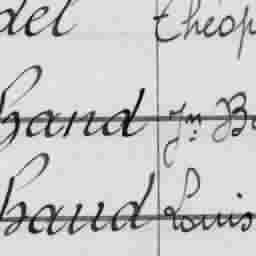 del théop
haud Jn Ba
haud Louis